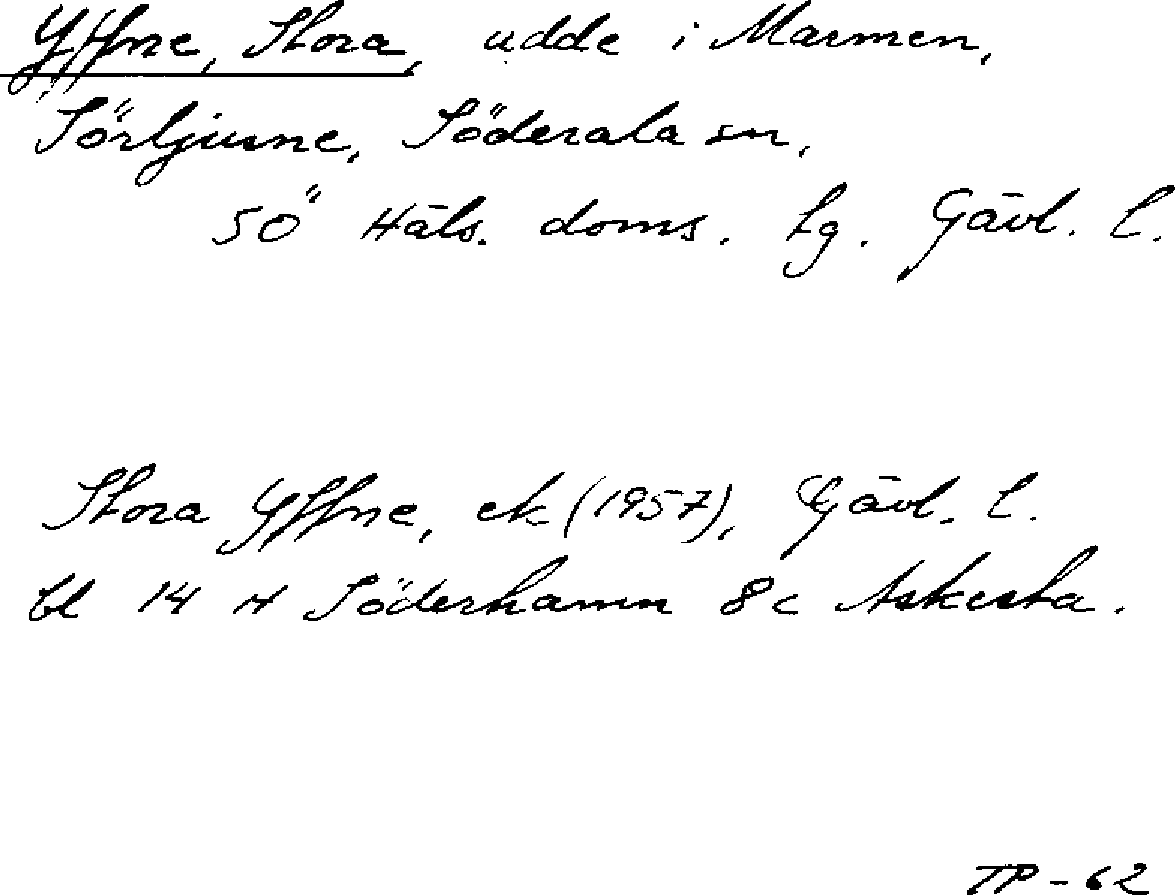 Yffne, Stora, udde i Marmen,
Sörljusne, Söderala sn,
SÖ Häls. doms. Lg. Gävl. l.
Stora Yffne, ek (1957), Gävl. l.
bl 14 H Söderhamn 8c Askesta.
TP-62